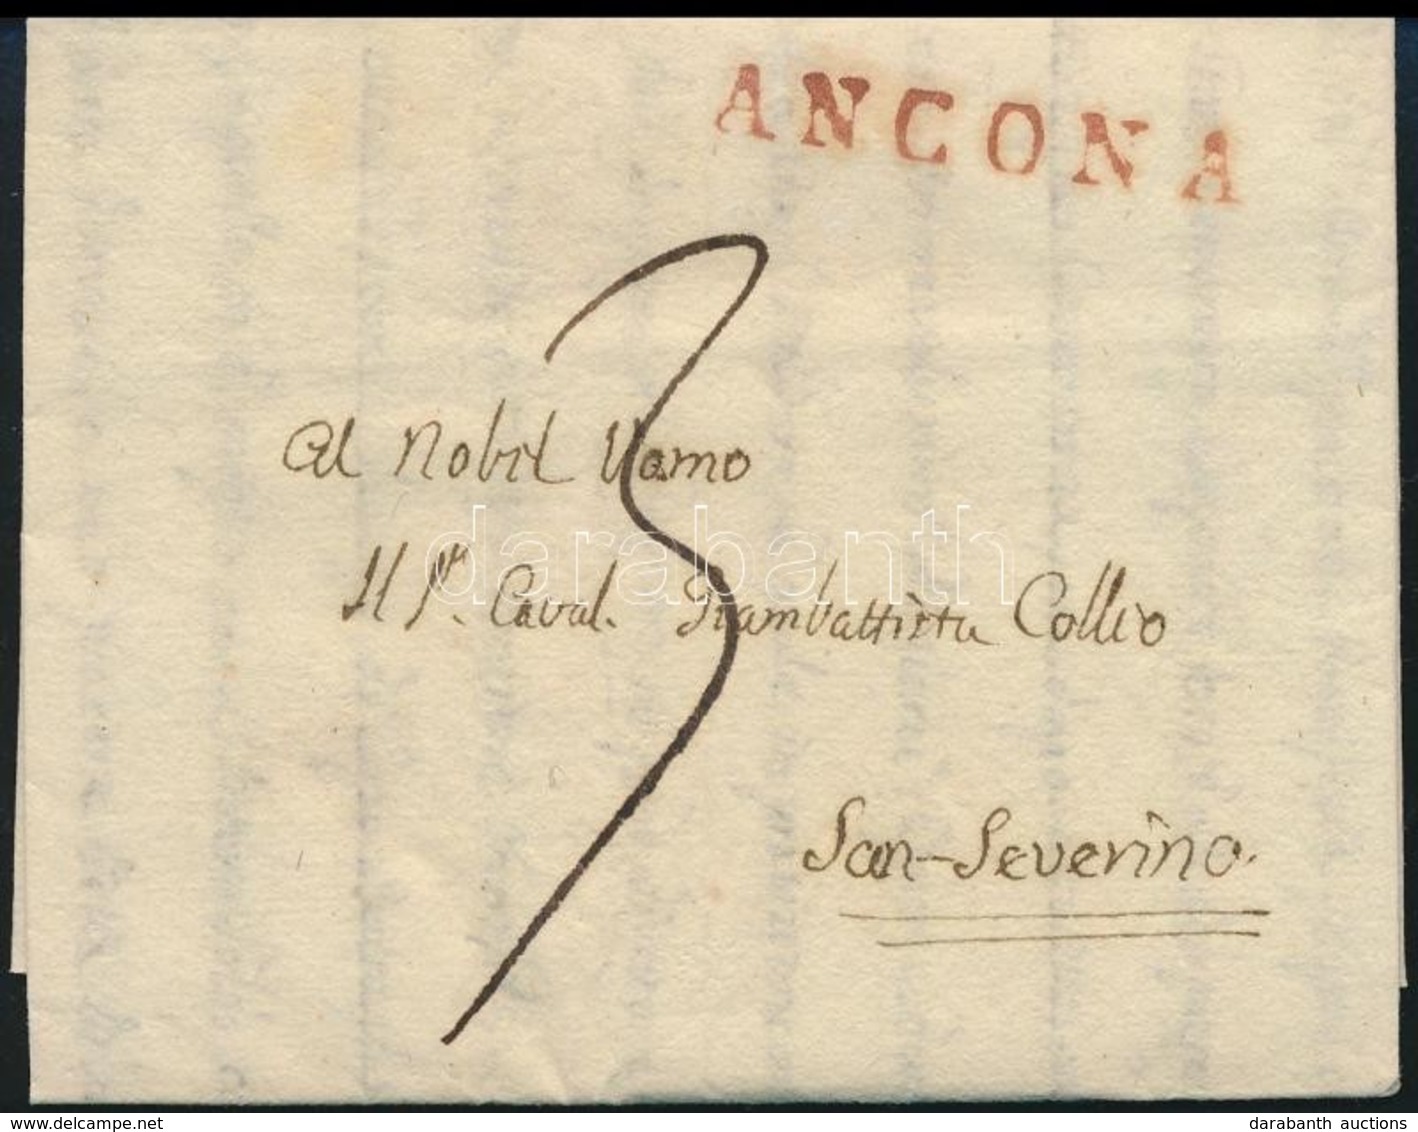 ANCONA
3
Al Nobil Uomo
Il Sr. Caval. Giambattista Collio
darabanth
San-Severino.
delcampe.net
darabanth auctions